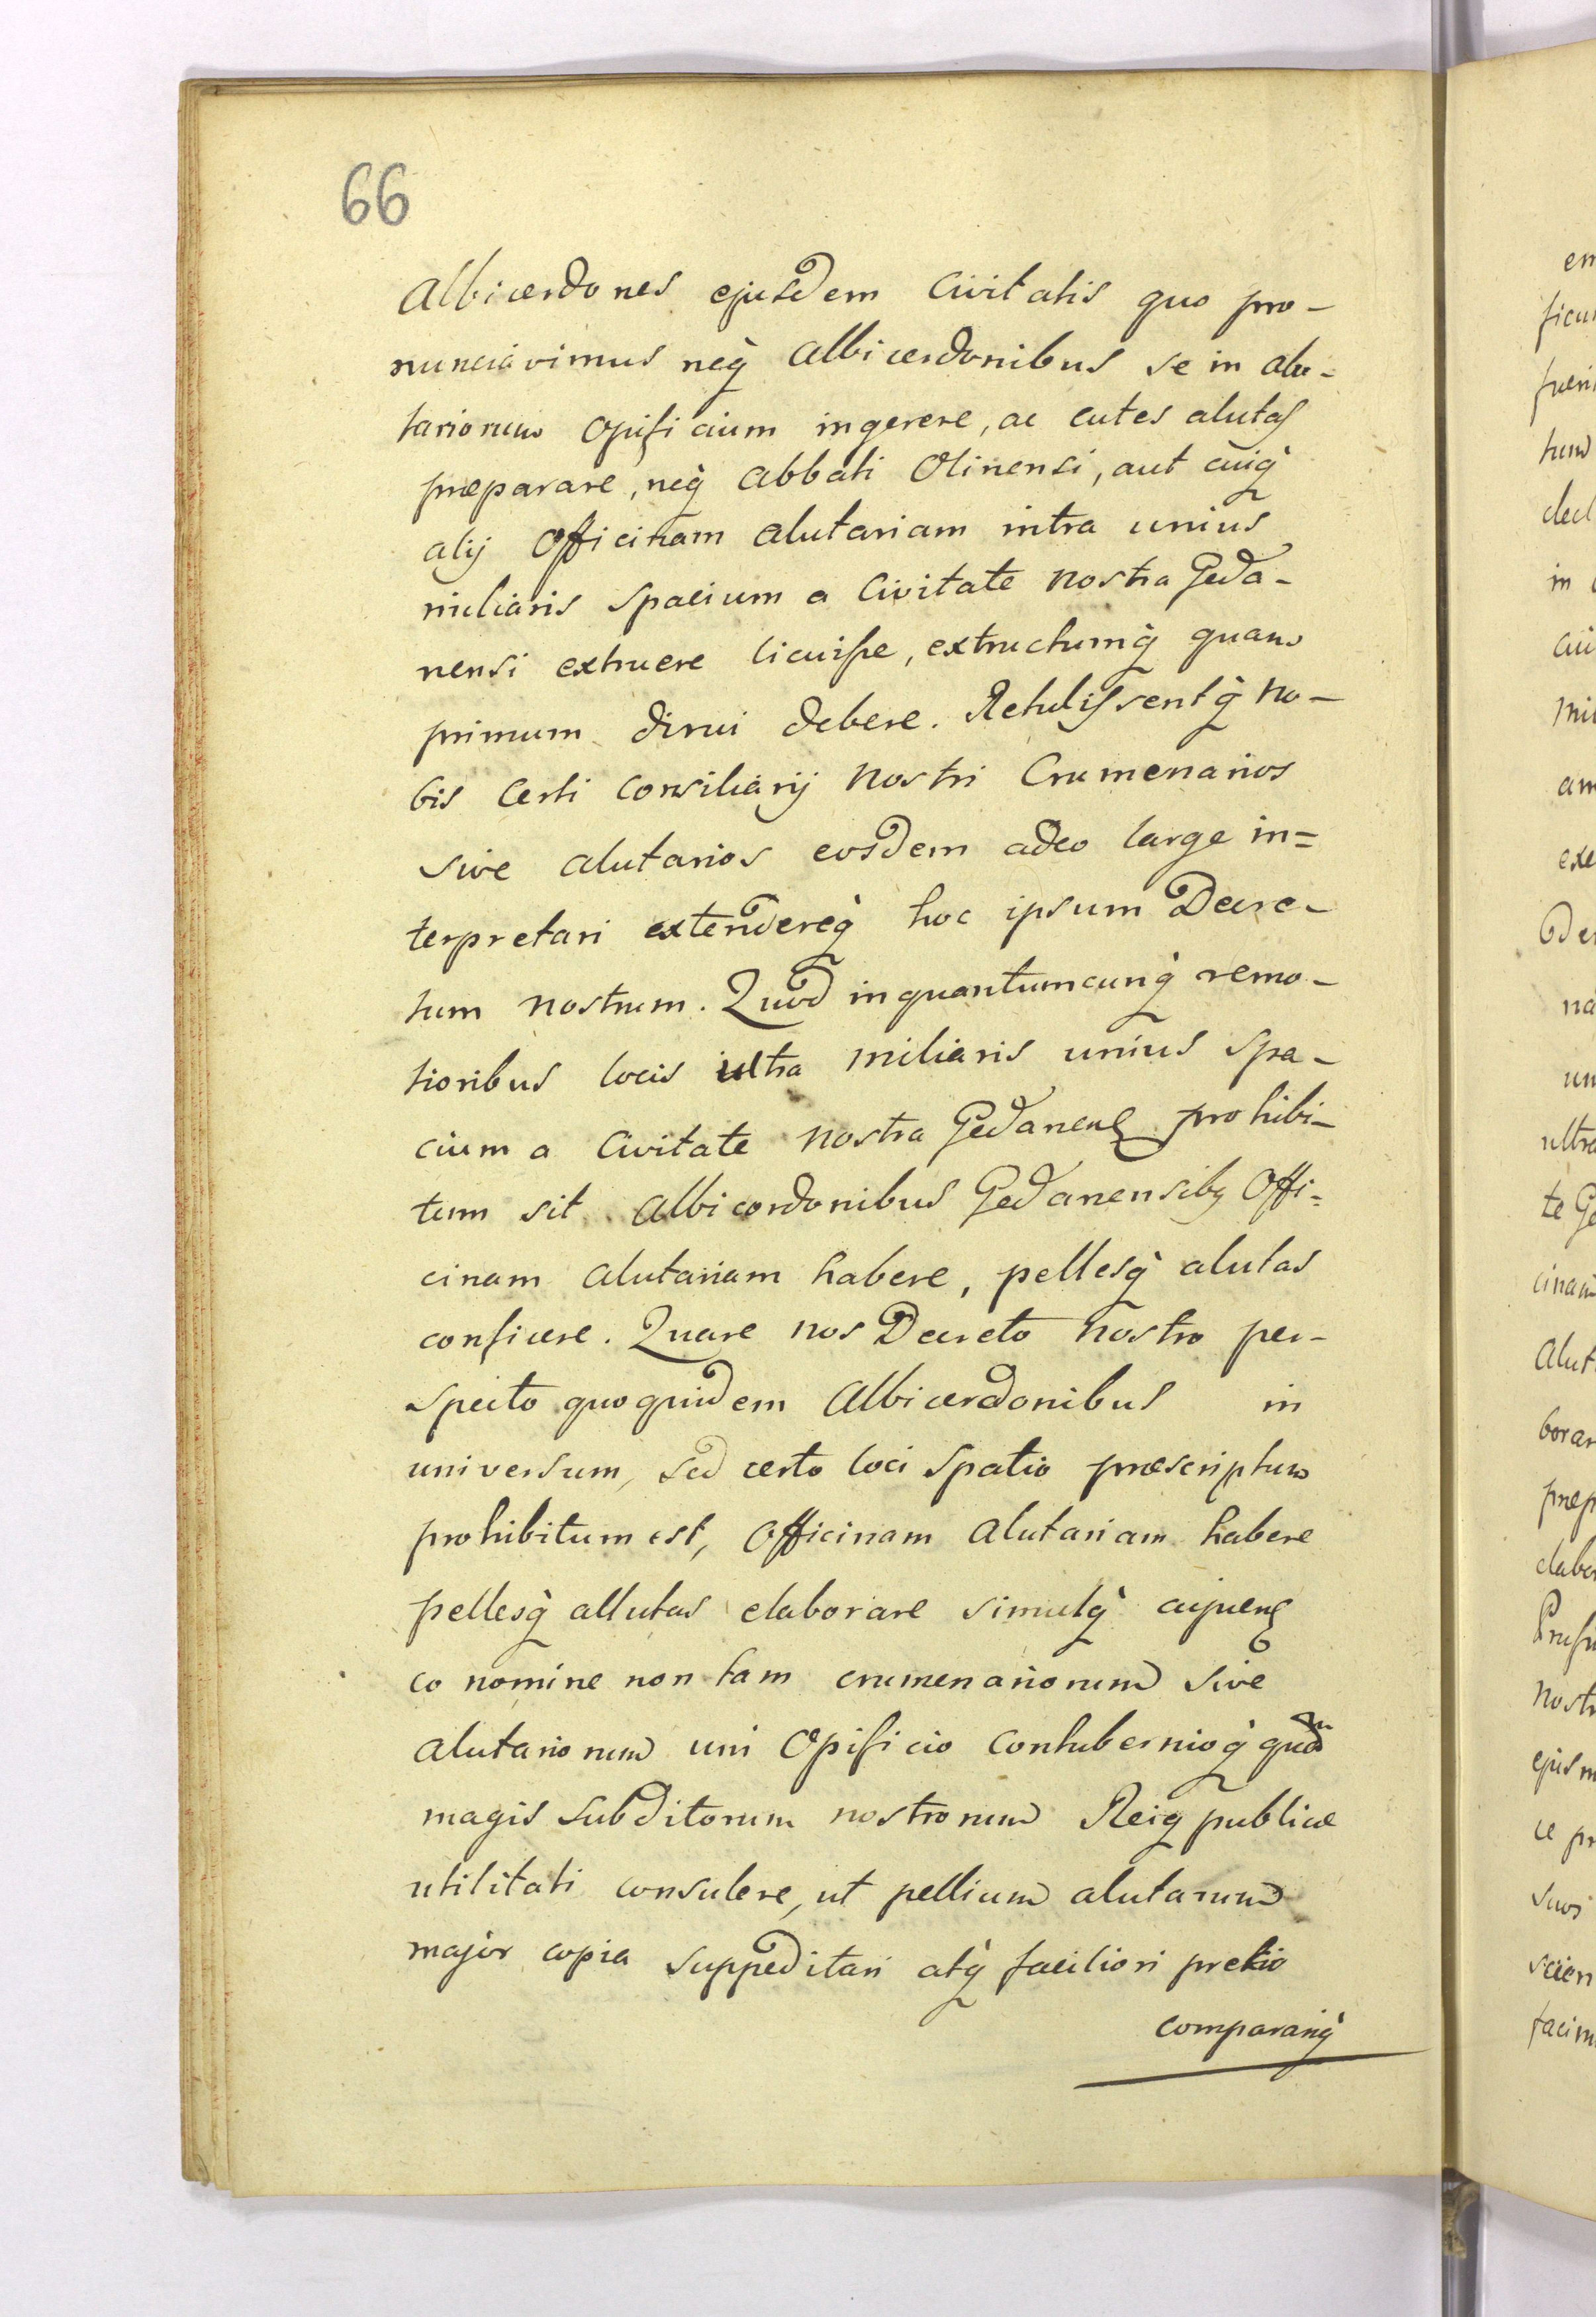 66
Albicerdones ejusdem Civitatis quo pro-
nunciavimus neq̀ Albicerdonibus se in alu-
tariorum Opificium ingerere, ac cutes alutas
præparare, neq̀ Abbati Olinensi, aut cuiq̀
alij Officinam alutariam intra unius
miliaris Spacium a Civitate nostra Geda-
nensi extruere licuisse, extructumq̀ quam
primum dirui debere. Retulissentq̀ no-
bis Certi Consiliarij Nostri Crumenarios
sive alutarios eosdem adeo large in=
terpretari extendereq̀ hoc ipsum Decre-
tum nostrum. Quod in quantumcunq̀ remo-
tioribus locis ultra miliaris unius spa-
cium a Civitate nostra Gedanens prohibi-
tum sit Albicordonibus Gedanensibꝫ Offi=
cinam alutariam habere, pellesq̀ alutas
conficere. Quare nos Decreto nostro per-
specto quoquidem Albicerdonibus in
universum, sed certo loci Spatio præscriptum
prohibitum est, Officinam alutariam habere
pellesq̀ allutas elaborare simulq̀
eo nomine non tam crumenariorum sive
alutariorum uni Opificio Contubernioq̀ quam
magis subditorum nostrorum Reiq publicæ
utilitati consulere, ut pellium alutarum
major copia suppeditari atq̀ faciliori pretio
comparariq̀
en
ficu
hum
decl
in
mi
am
exe
na
un
ultra
te Ge
cinam
Alut
borar
prep
elabo
nostr
ejusm
ce pr
suos
scien
facim